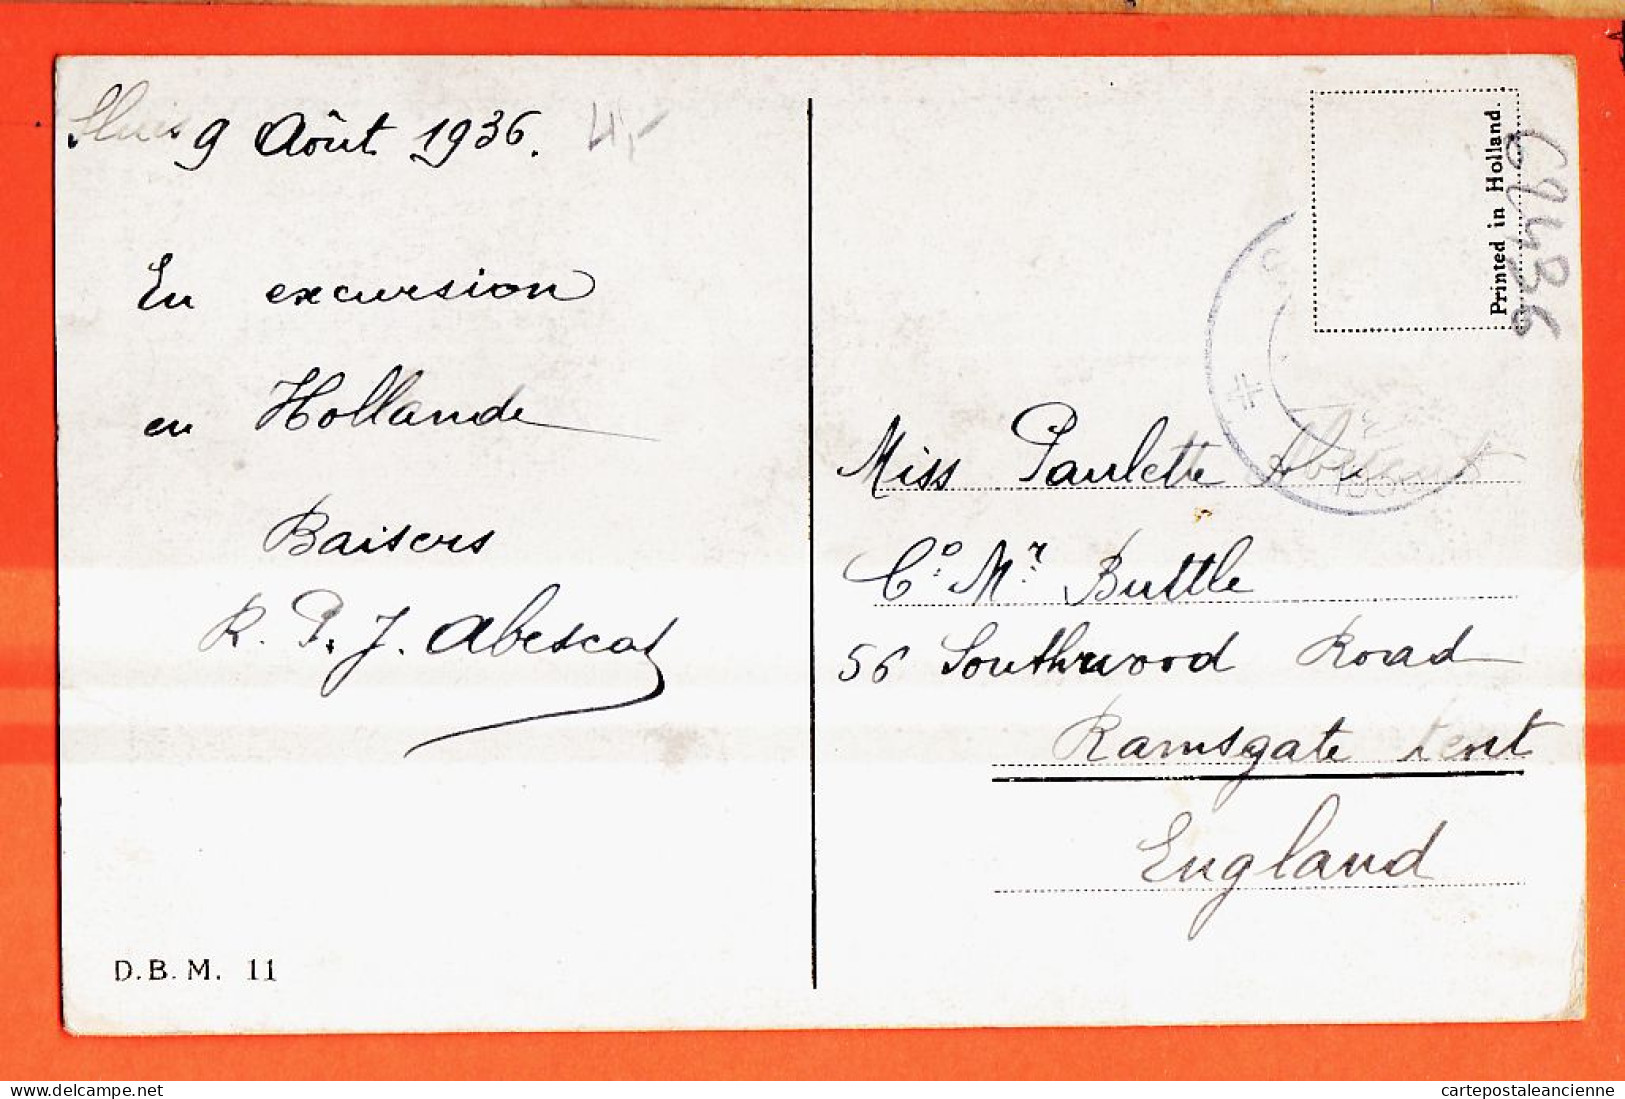 Sluis 9 Août 1936. 4,-
En excursion
en Hollande
Baisers
R. P. J. Abescat
D.B.M. 11
Printed in Holland.
69436
1936
Miss Paulette Abescat
Co. Mr. Buttle
56 Southwood Road
Ramsgate Kent
England
delcampe.net
cartepostaleancienne